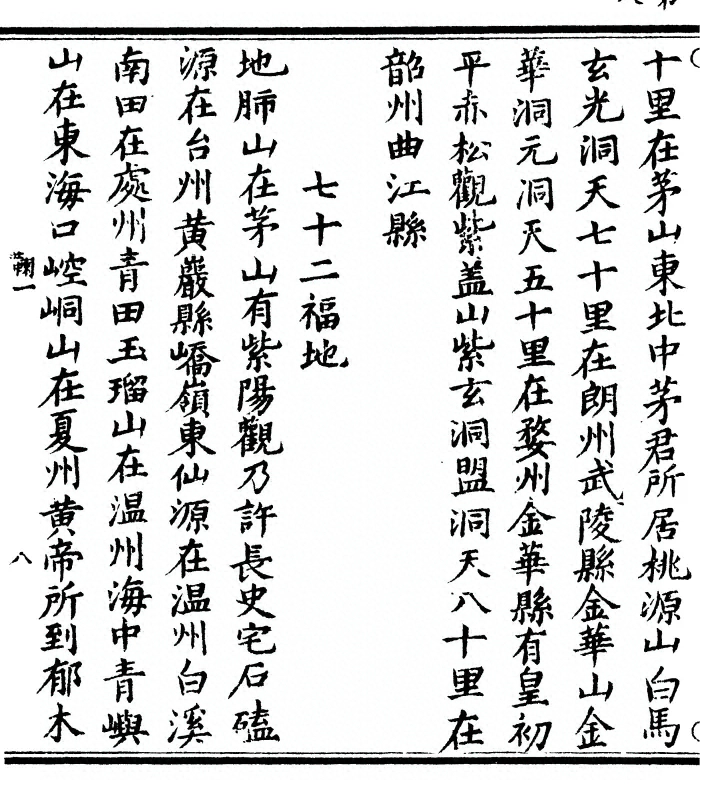 十里在茅山東北中茅君所居桃源山白馬
玄光洞天七十里在朗州武陵縣金華山金
華洞元洞天五十里在婺州金華縣有皇初
平赤松觀紫盖山紫玄洞盟洞天八十里在
韶州曲江縣
七十二福地
地肺山在茅山有紫陽觀乃許長史宅石磕
源在台州黄巖縣嶠嶺東仙源在温州白溪
南田在處州青田玉瑠山在温州海中青嶼
山在東海口崆峒山在夏州黄帝所到郁木
八